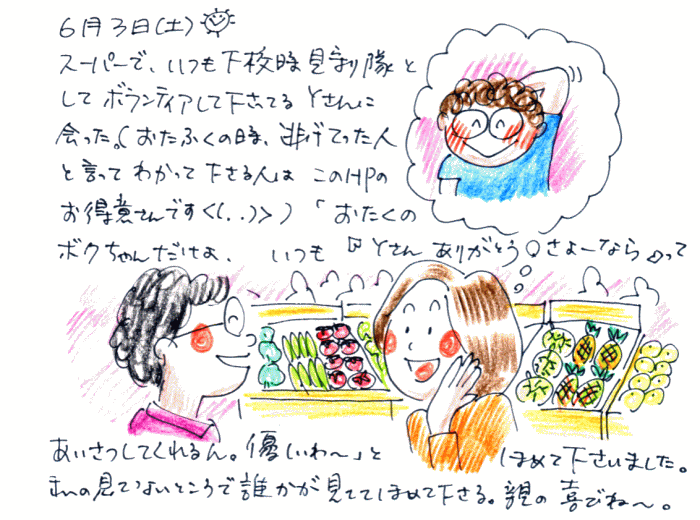 6月3日(土)
スーパーで、いつも下校時見守り隊と
してボランティアして下さってるYさんに
会った。(おたふくの時、逃げてった人
と言ってわかって下さる人は このHPの
お得意さんです<(..)>)「おたくの
ボクちゃんだけよ、いつも『Yさん ありがとう♀さよーなら♪』って
あいさつしてくれるん。優しいわ〜」と ほめて下さいました。
私の見てないところで誰かが見ててほめて下さる。親の喜びね〜。